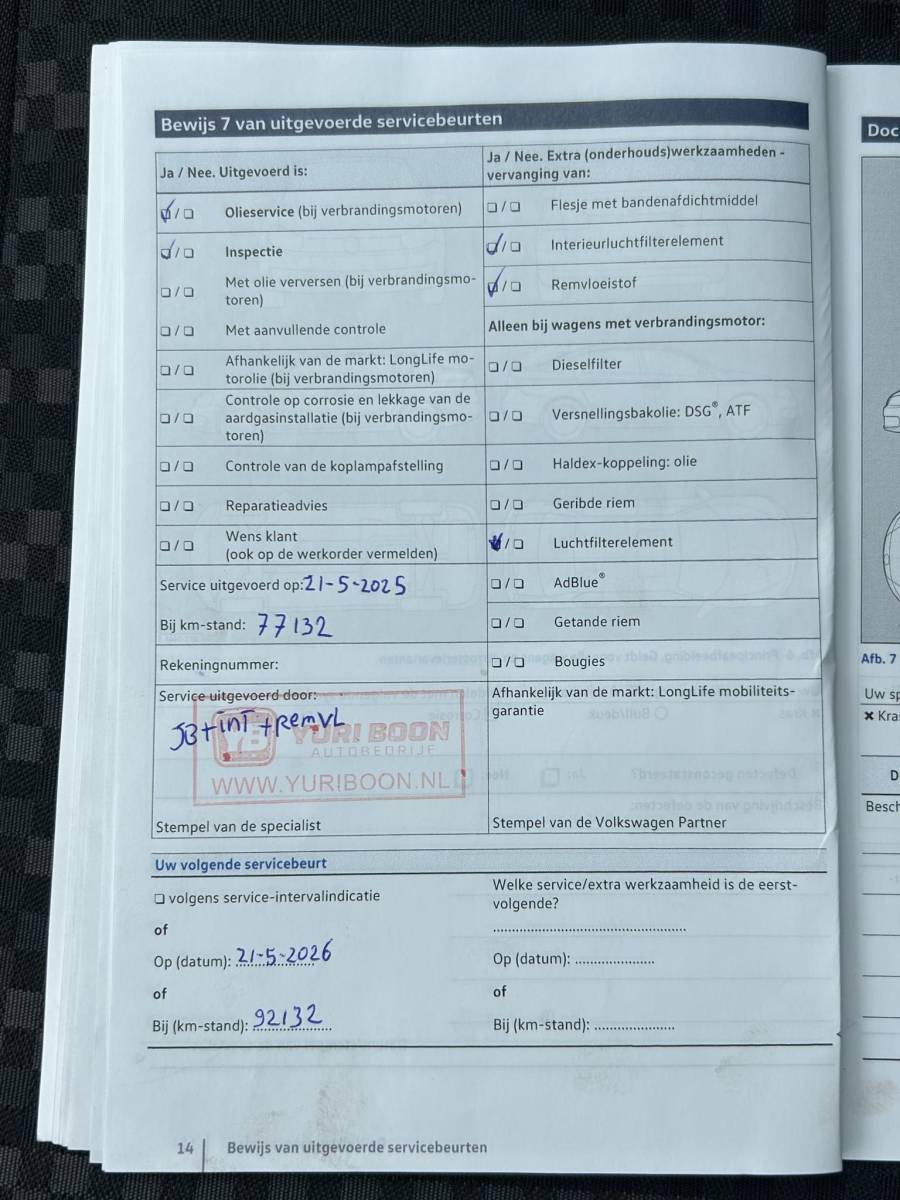 Bewijs 7 van uitgevoerde servicebeurten
Ja / Nee. Uitgevoerd is:
☑ / ☐ Olieservice (bij verbrandingsmotoren)
☑ / ☐ Inspectie
☐ / ☐ Met olie verversen (bij verbrandingsmo-
toren)
☐ / ☐ Met aanvullende controle
☐ / ☐ Afhankelijk van de markt: LongLife mo-
torolie (bij verbrandingsmotoren)
☐ / ☐ Controle op corrosie en lekkage van de
aardgasinstallatie (bij verbrandingsmo-
toren)
☐ / ☐ Controle van de koplampafstelling
☐ / ☐ Reparatieadvies
☐ / ☐ Wens klant
(ook op de werkorder vermelden)
Service uitgevoerd op: 21-5-2025
Bij km-stand: 77132
Rekeningnummer:
Service uitgevoerd door:
JB+INT+RemVL
YB YURI BOON
AUTOBEDRIJF
WWW.YURIBOON.NL
Stempel van de specialist
Ja / Nee. Extra (onderhouds)werkzaamheden -
vervanging van:
☐ / ☐ Flesje met bandenafdichtmiddel
☑ / ☐ Interieurluchtfilterelement
☑ / ☐ Remvloeistof
Alleen bij wagens met verbrandingsmotor:
☐ / ☐ Dieselfilter
☐ / ☐ Versnellingsbakolie: DSG®, ATF
☐ / ☐ Haldex-koppeling: olie
☐ / ☐ Geribde riem
☑ / ☐ Luchtfilterelement
☐ / ☐ AdBlue®
☐ / ☐ Getande riem
☐ / ☐ Bougies
Afhankelijk van de markt: LongLife mobiliteits-
garantie
Stempel van de Volkswagen Partner
Uw volgende servicebeurt
☐ volgens service-intervalindicatie
of
Op (datum): 21-5-2026
of
Bij (km-stand): 92132
Welke service/extra werkzaamheid is de eerst-
volgende?
Op (datum):
of
Bij (km-stand):
14 Bewijs van uitgevoerde servicebeurten
Doc
Afb. 7
Uw sp
✖ Kra
D
Besch